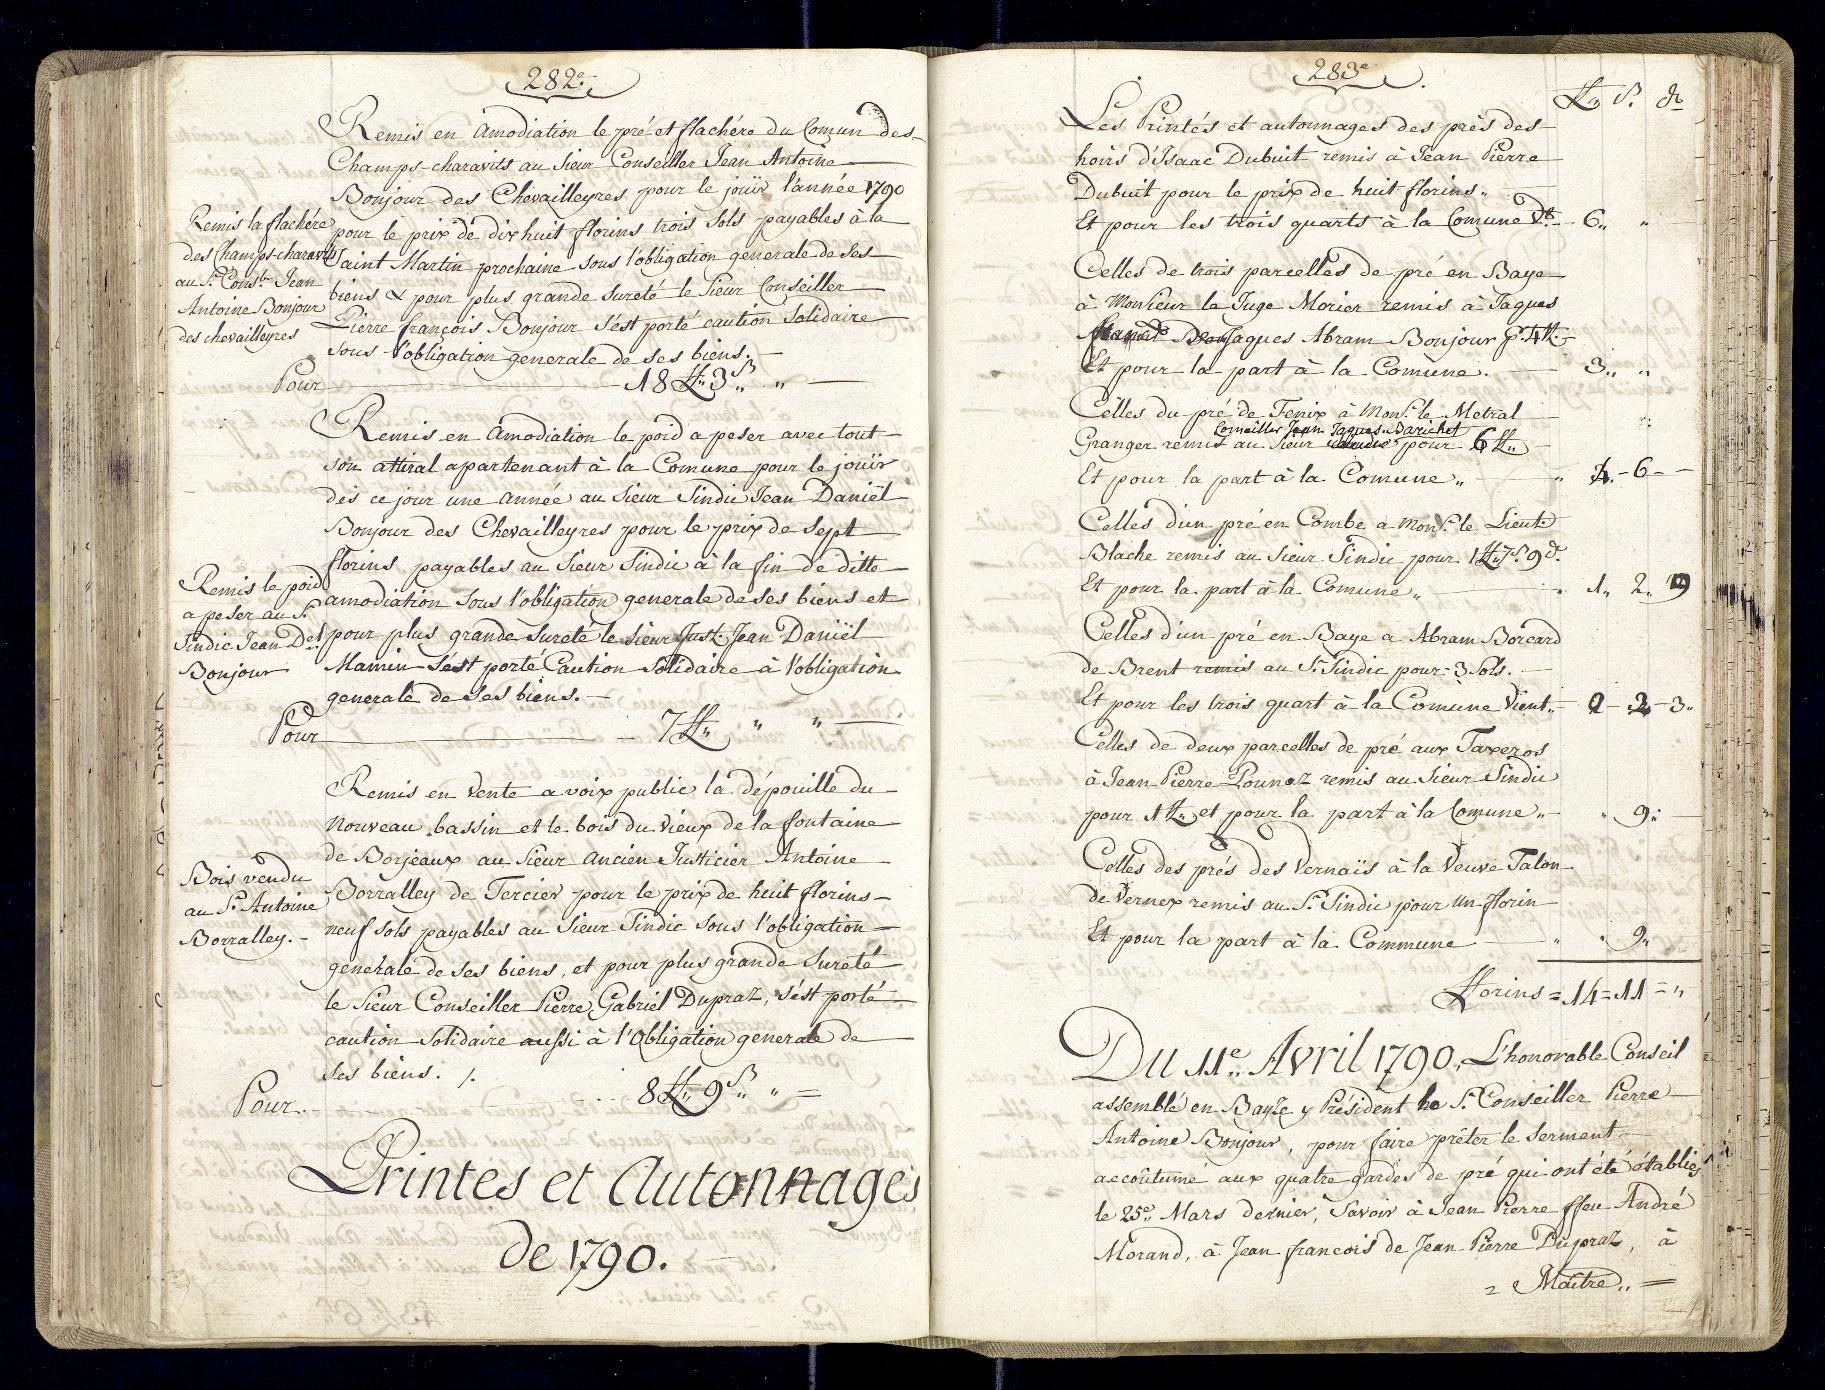 282e.
Remis en Amodiation le pré et flachére du Comun des
Champs-charavits au Sieur Conseiller Jean Antoine
Bonjour des Chevailleyres pour le jouïr l'année 1790
pour le prix de dix huit florins trois sols payables à la
Saint Martin prochaine sous l'obligation generale de ses
biens & pour plus grande sureté le Sieur Conseiller
Pierre françois Bonjour s'est porté caution solidaire
sous l'obligation generale de ses biens.
Remis la flachére
des Champs-charavits
au Sr. Consr. Jean
Antoine Bonjour
des chevailleyres
Pour 18 ff. 3 ß „
Remis en Amodiation le poid a peser avec tout
son attiral apartenant à la Comune pour le jouïr
dès ce jour une année au Sieur Sindic Jean Daniël
Bonjour des Chevailleyres pour le prix de sept
florins payables au Sieur Sindic à la fin de ditte
amodiation sous l'obligation generale de ses biens et
pour plus grande sureté le Sieur Just. Jean Daniël
Mamin s'est porté Caution solidaire à l'obligation
generale de ses biens.
Remis le poid
a peser au Sr.
Sindic Jean Del
Bonjour
Pour 7 ff. „ „
Remis en vente a voix public la dépouille du
nouveau bassin et le bois du vieux de la fontaine
de Borjeaux au Sieur ancien Justicier Antoine
Borralley de Tercier pour le prix de huit florins
neuf sols payables au Sieur Sindic sous l'obligation
generale de ses biens, et pour plus grande sureté
le Sieur Conseiller Pierre Gabriel Dupraz, s'est porté
caution solidaire aussi à l'Obligation generale de
ses biens. /.
Bois vendu
au Sr. Antoine
Borralley.
Pour. 8 ff. 9 ß „ „
Printes et Autonnages
de 1790.
283e.
ff. ß. d.
Les Printés et autonnages des prés des
hoirs d'Isaac Dubuit remis à Jean Pierre
Dubuit pour le prix de huit florins „
Et pour les trois quarts à la Comune 6 „ „
Celles de trois parcelles de pré en Baye
à Monsieur le Juge Morier remis à Jaques
Jaques Abram Bonjour p. 4 ff.
Et pour la part à la Comune. 3 „ „
Celles du pré de Fenix à Monsr. le Metral
Conseiller Jean Jaques Barichet
Granger remis au Sieur pour 6 ff.
Et pour la part à la Comune „ „ 4 - 6 -
Celles d'un pré en Combe a Monsr. le Lieut.
Blache remis au Sieur Sindic pour 1 ff. 7 ß. 9 d.
Et pour la part à la Comune „ 1 „ 2 „ 9
Celles d'un pré en Baye a Abram Borcard
de Brent remis au Sr. Sindic pour 3 sols.
Et pour les trois quart à la Comune Vient „ - 2 - 3 „
Celles de deux parcelles de pré aux Taxeros
à Jean Pierre Pounaz remis au Sieur Sindic
pour 1 ff. et pour la part à la Comune „ „ 9 „
Celles des prés des Vernaïs à la Veuve Talon
de Vernex remis au Sr. Sindic pour un florin
Et pour la part à la Commune „ „ 9 „
fflorins = 14 = 11 = „
Du 11e. Avril 1790, L'honorable Conseil
assemblé en Bayze y Président le Sr. Conseiller Pierre
Antoine Bonjour, pour faire prêter le serment
accoûtumé aux quatre gardes de pré qui ont été établies
le 25e. Mars dernier, savoir à Jean Pierre ffeu André
Morand, à Jean francois de Jean Pierre Dupraz, à
= Maître „ =